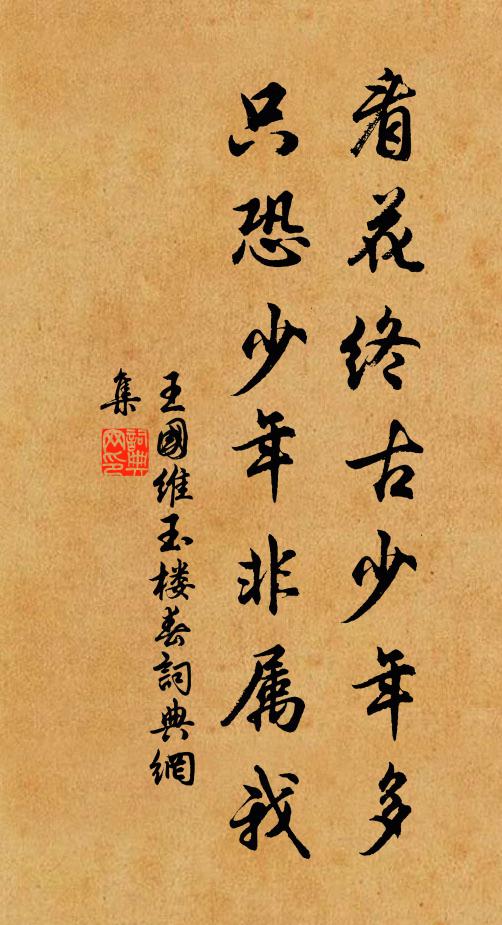 看花终古少年多
只恐少年非属我
王國维玉楼春詞典網
集
詞典网印